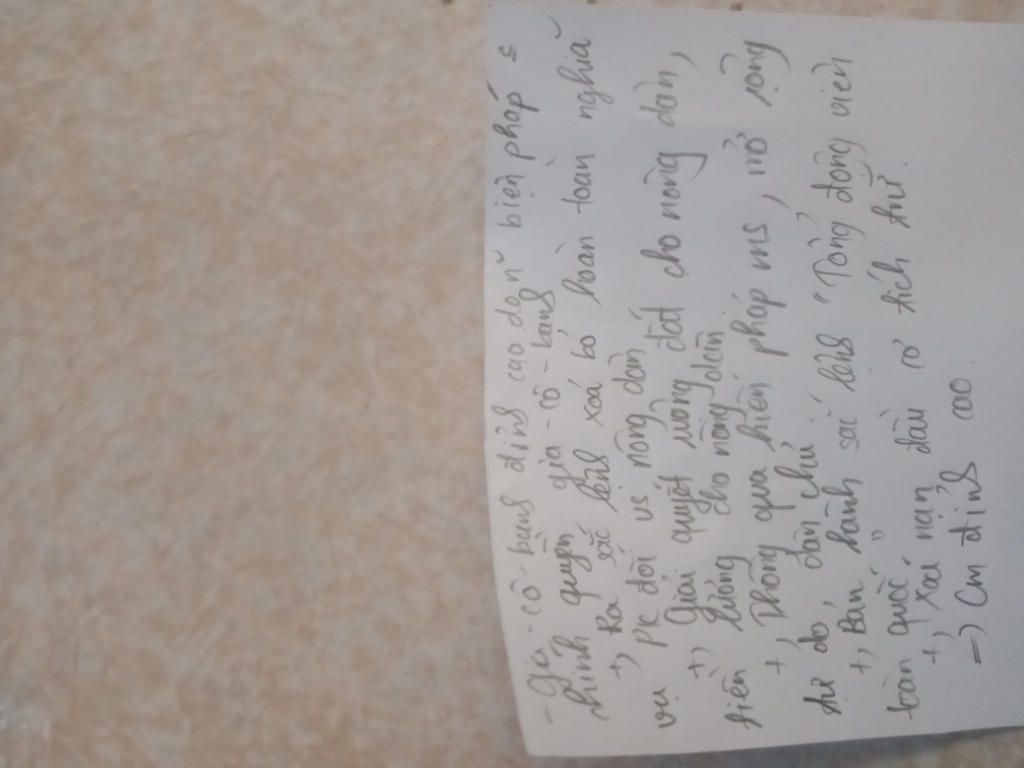 - Gia - cô - banh đỉnh cao của biện pháp s
chính quyền gia - cô - banh
+, Ra sắc lệnh xoá bỏ hoàn toàn nghĩa
vụ pk đối vs nông dân
+, Giải quyết ruộng đất cho nông dân,
tiền lương cho nông dân
+, Thông qua hiến pháp ms, mở rộng
tự do, dân chủ
+, Ban hành sắc lệnh "Tổng động viên
toàn quốc"
+, Xoá nạn đầu cơ tích trữ
=) Cm đỉnh cao